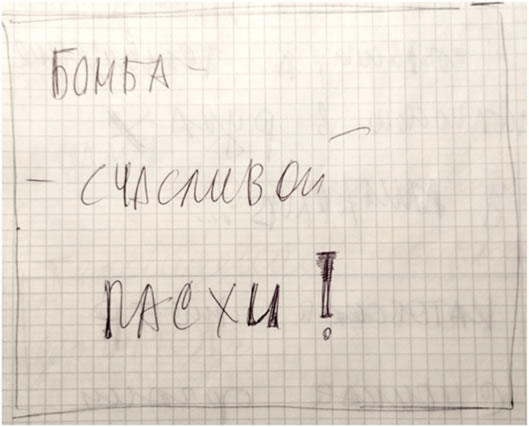 БОМБА-
- СЧАСЛИВОЙ
ПАСХИ!